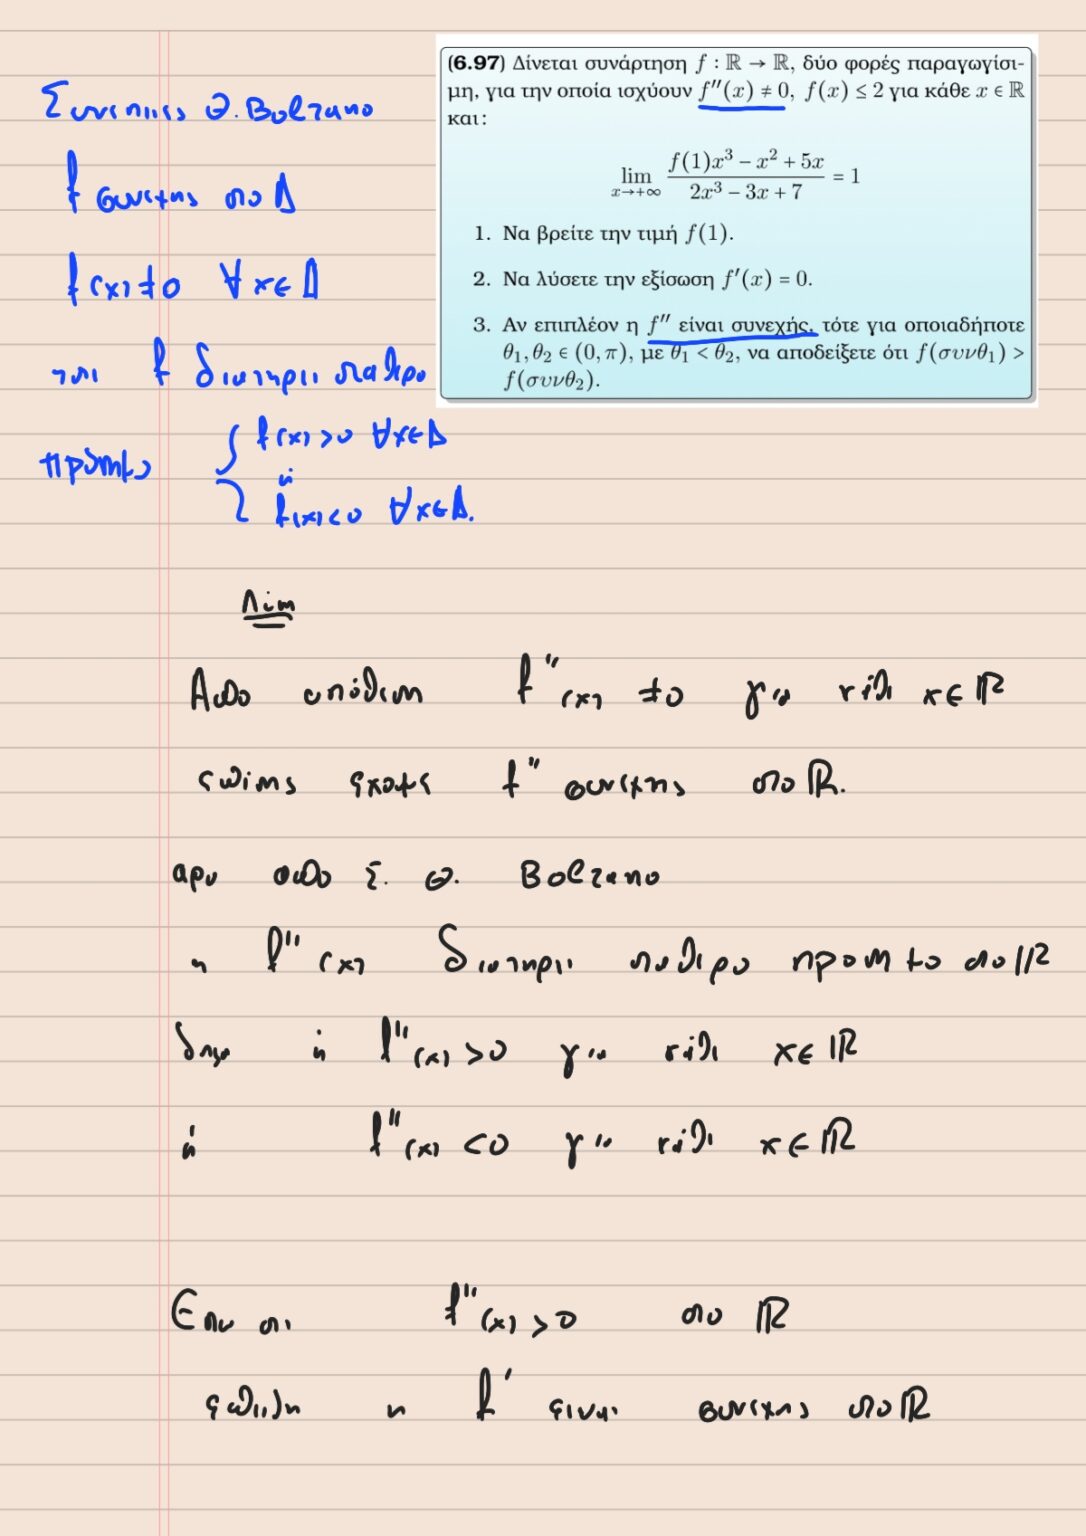 Συνεπιες Θ. Bolzano
f συνεχης στο Δ
f(x)≠0 ∀x∈Δ
τοτε f διατηρει σταθερο
πρόσημο { f(x)>0 ∀x∈Δ
ή
f(x)<0 ∀x∈Δ.
(6.97) Δίνεται συνάρτηση f : ℝ → ℝ, δύο φορές παραγωγίσι-
μη, για την οποία ισχύουν f''(x) ≠ 0, f(x) ≤ 2 για κάθε x ∈ ℝ
και:
lim x→+∞ (f(1)x³ − x² + 5x)/(2x³ − 3x + 7) = 1
1. Να βρείτε την τιμή f(1).
2. Να λύσετε την εξίσωση f'(x) = 0.
3. Αν επιπλέον η f'' είναι συνεχής, τότε για οποιαδήποτε
θ₁, θ₂ ∈ (0, π), με θ₁ < θ₂, να αποδείξετε ότι f(συνθ₁) >
f(συνθ₂).
Λύση
Απο υπόθεση f''(x) ≠0 για κάθε x∈ℝ
επίσης έχουμε f'' συνεχης στο ℝ.
αρα απο Σ. Θ. Bolzano
η f''(x) διατηρει σταθερο προσημο στο ℝ
δηλα ή f''(x)>0 για κάθε x∈ℝ
ή f''(x)<0 για κάθε x∈ℝ
Εστω οτι f''(x)>0 στο ℝ
επειδη η f' ειναι συνεχης στο ℝ